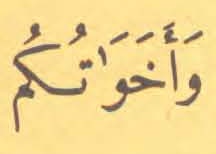 وَأَخَوَاتُكُمْ